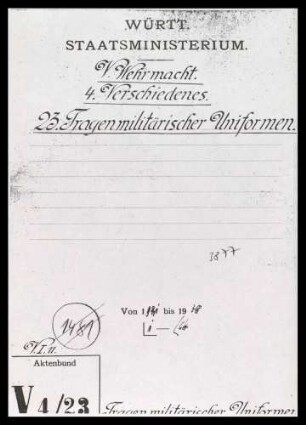 WÜRTT.
STAATSMINISTERIUM.
V. Wehrmacht.
4. Verschiedenes.
23. Tragen militärischer Uniformen.
3877
Von 1 bis 19
1481
V. I. u.
Aktenbund
V 4/23
Tragen militärischer Uniformen